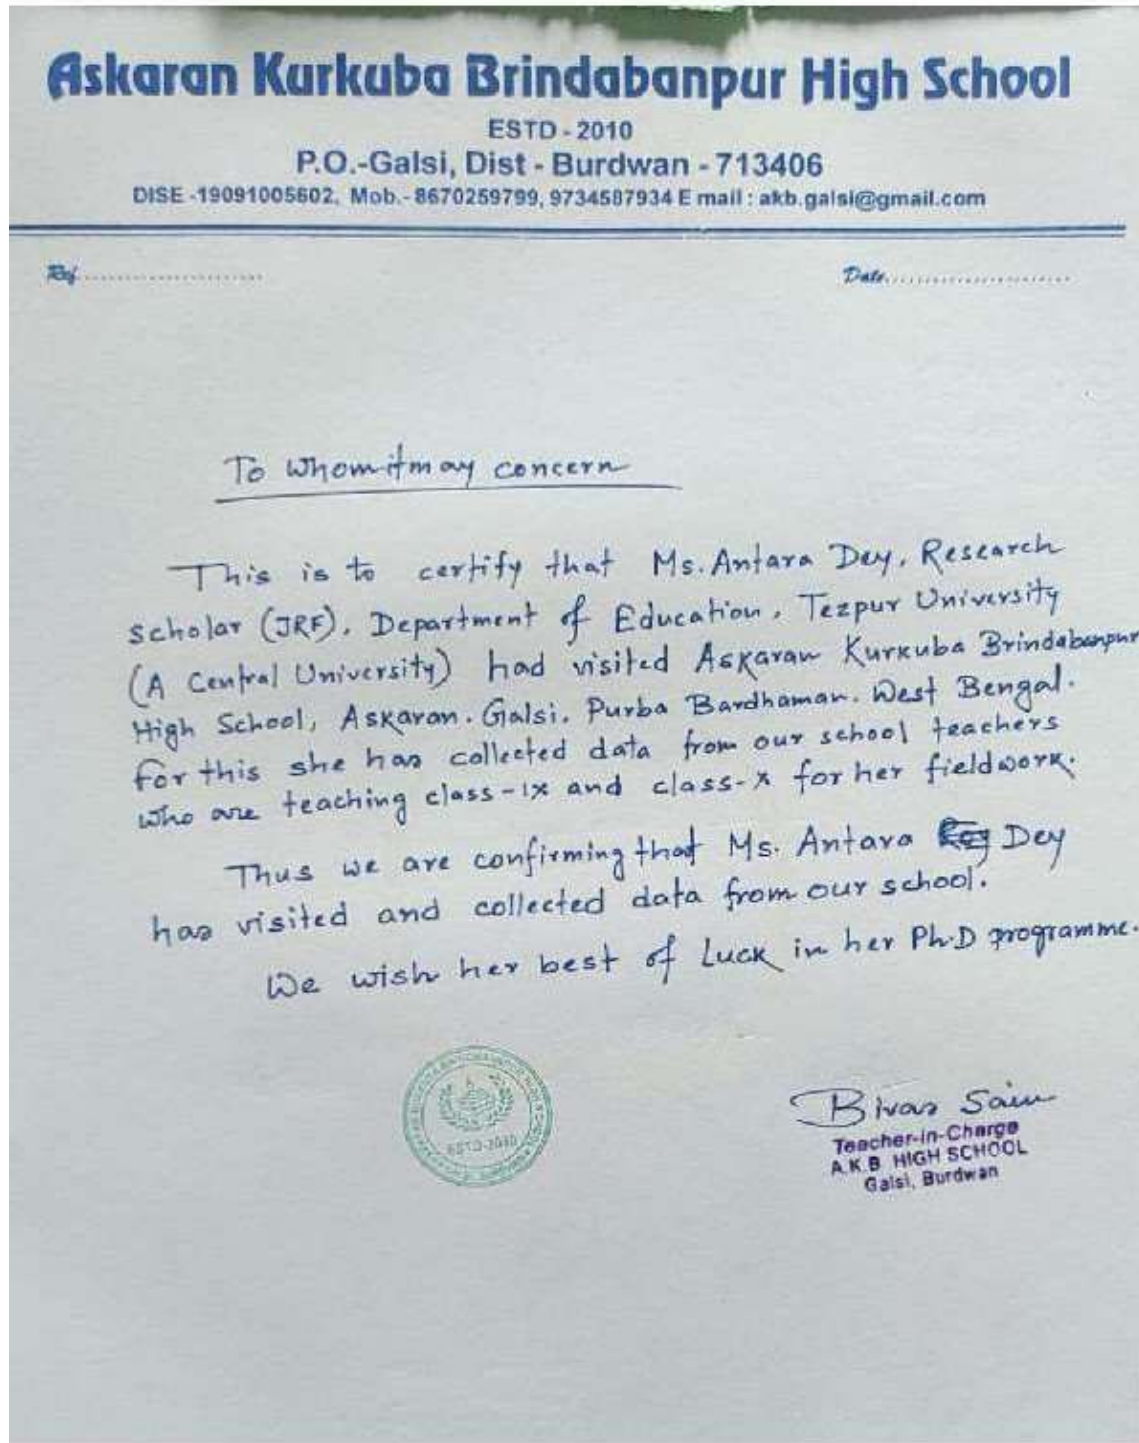 Askaran Kurkuba Brindabanpur High School
ESTD - 2010
P.O.-Galsi, Dist - Burdwan - 713406
DISE -19091005602, Mob.- 8670259799, 9734587934 E mail : akb.galsi@gmail.com
Ref........................
Date........................
To Whom it may concern
This is to certify that Ms. Antara Dey, Research
Scholar (JRF), Department of Education, Tezpur University
(A Central University) had visited Askaran Kurkuba Brindabanpur
High School, Askaran. Galsi. Purba Bardhaman. West Bengal.
For this she has collected data from our school teachers
who are teaching class-IX and class-X for her fieldwork.
Thus we are confirming that Ms. Antara Dey
has visited and collected data from our school.
We wish her best of Luck in her Ph.D programme.
ESTD-2010
Bivas Sain
Teacher-in-Charge
A.K.B HIGH SCHOOL
Galsi, Burdwan